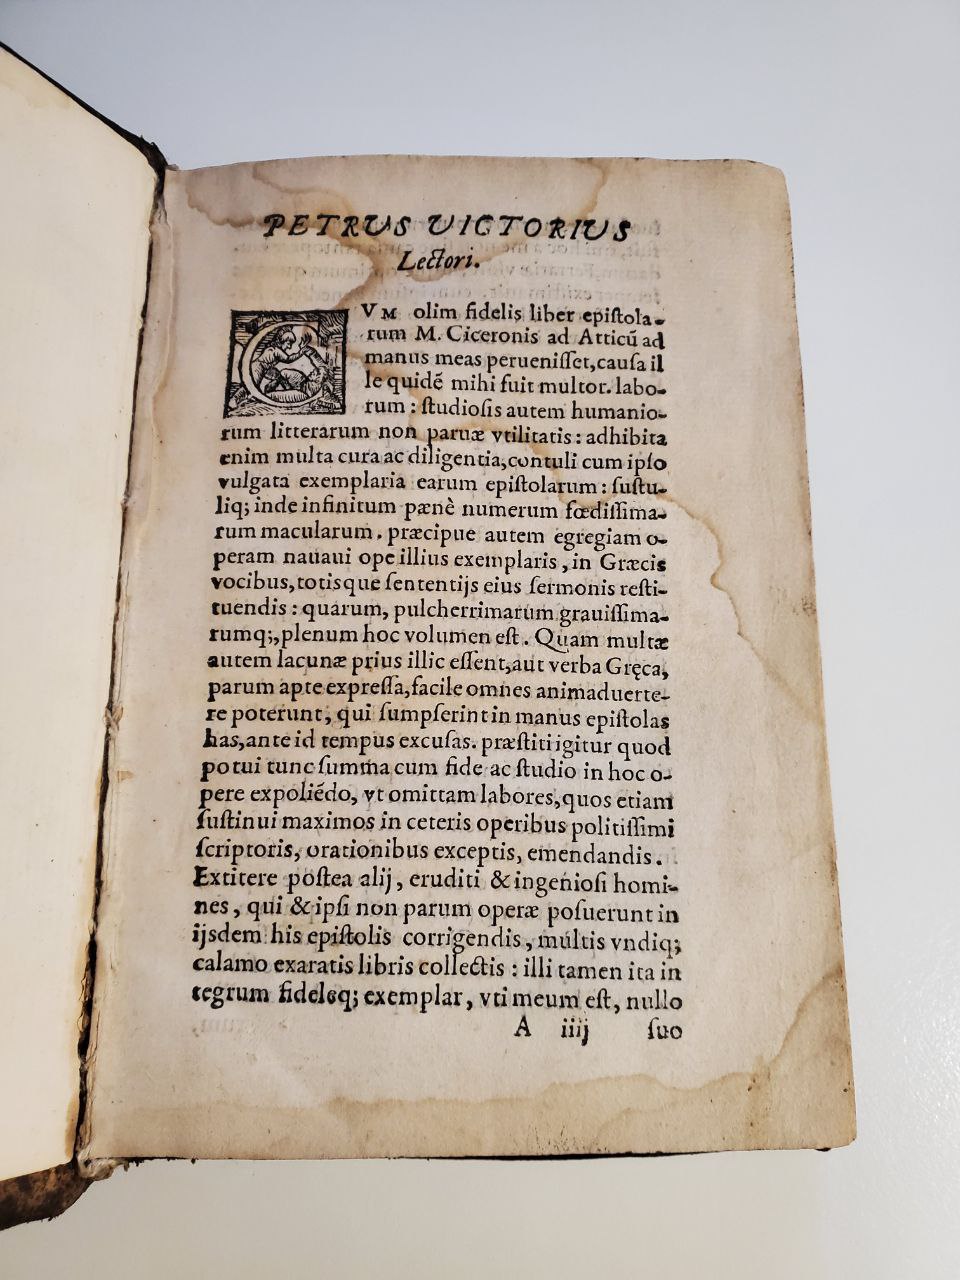 PETRVS VICTORIVS
Lectori.
CVM olim fidelis liber epiſtola-
rum M. Ciceronis ad Atticū ad
manus meas perueniſſet, cauſa il
le quidē mihi fuit multor. labo-
rum : ſtudioſis autem humanio-
rum litterarum non paruæ vtilitatis : adhibita
enim multa cura ac diligentia, contuli cum ipſo
vulgata exemplaria earum epiſtolarum : ſuſtu-
liq; inde infinitum pænè numerum fœdiſſima-
rum macularum. præcipue autem egregiam o-
peram nauaui ope illius exemplaris, in Græcis
vocibus, totisque ſententijs eius ſermonis reſti-
tuendis : quarum, pulcherrimarum grauiſſima-
rumq;, plenum hoc volumen eſt. Quam multæ
autem lacunæ prius illic eſſent, aut verba Gręca,
parum apte expreſſa, facile omnes animaduerte-
re poterunt, qui ſumpſerint in manus epiſtolas
has, ante id tempus excuſas. præſtiti igitur quod
potui tunc ſumma cum fide ac ſtudio in hoc o-
pere expoliēdo, vt omittam labores, quos etiam
ſuſtinui maximos in ceteris operibus politiſſimi
ſcriptoris, orationibus exceptis, emendandis.
Extitere poſtea alij, eruditi & ingenioſi homi-
nes, qui & ipſi non parum operæ poſuerunt in
ijsdem his epiſtolis corrigendis, multis vndiq;
calamo exaratis libris collectis : illi tamen ita in
tegrum fideleq; exemplar, vti meum eſt, nullo
A iiij ſuo